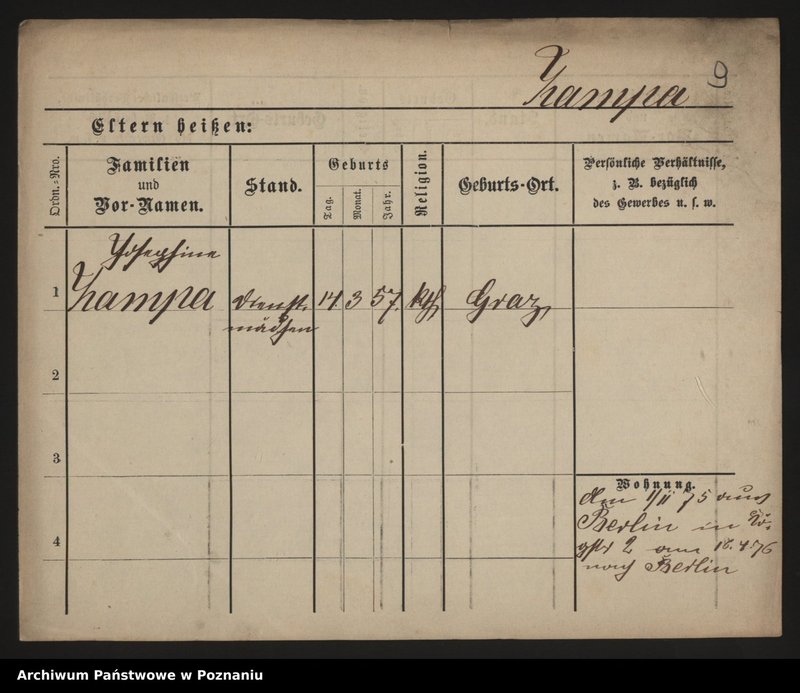 9
Zampa
Eltern heißen:
Ordn.=Nro.
Familien
und
Vor=Namen.
Stand.
Geburts
Tag.
Monat.
Jahr.
Religion.
Geburts=Ort.
Persönliche Verhältnisse,
z. B. bezüglich
des Gewerbes u. s. w.
Josephine
1 Zampa Dienst- 14. 3 57. kth Graz
mädchen
2
3
Wohnung.
den 1/11 75 aus
Berlin in
2 am 18.4.76
4
nach Berlin
Archiwum Państwowe w Poznaniu